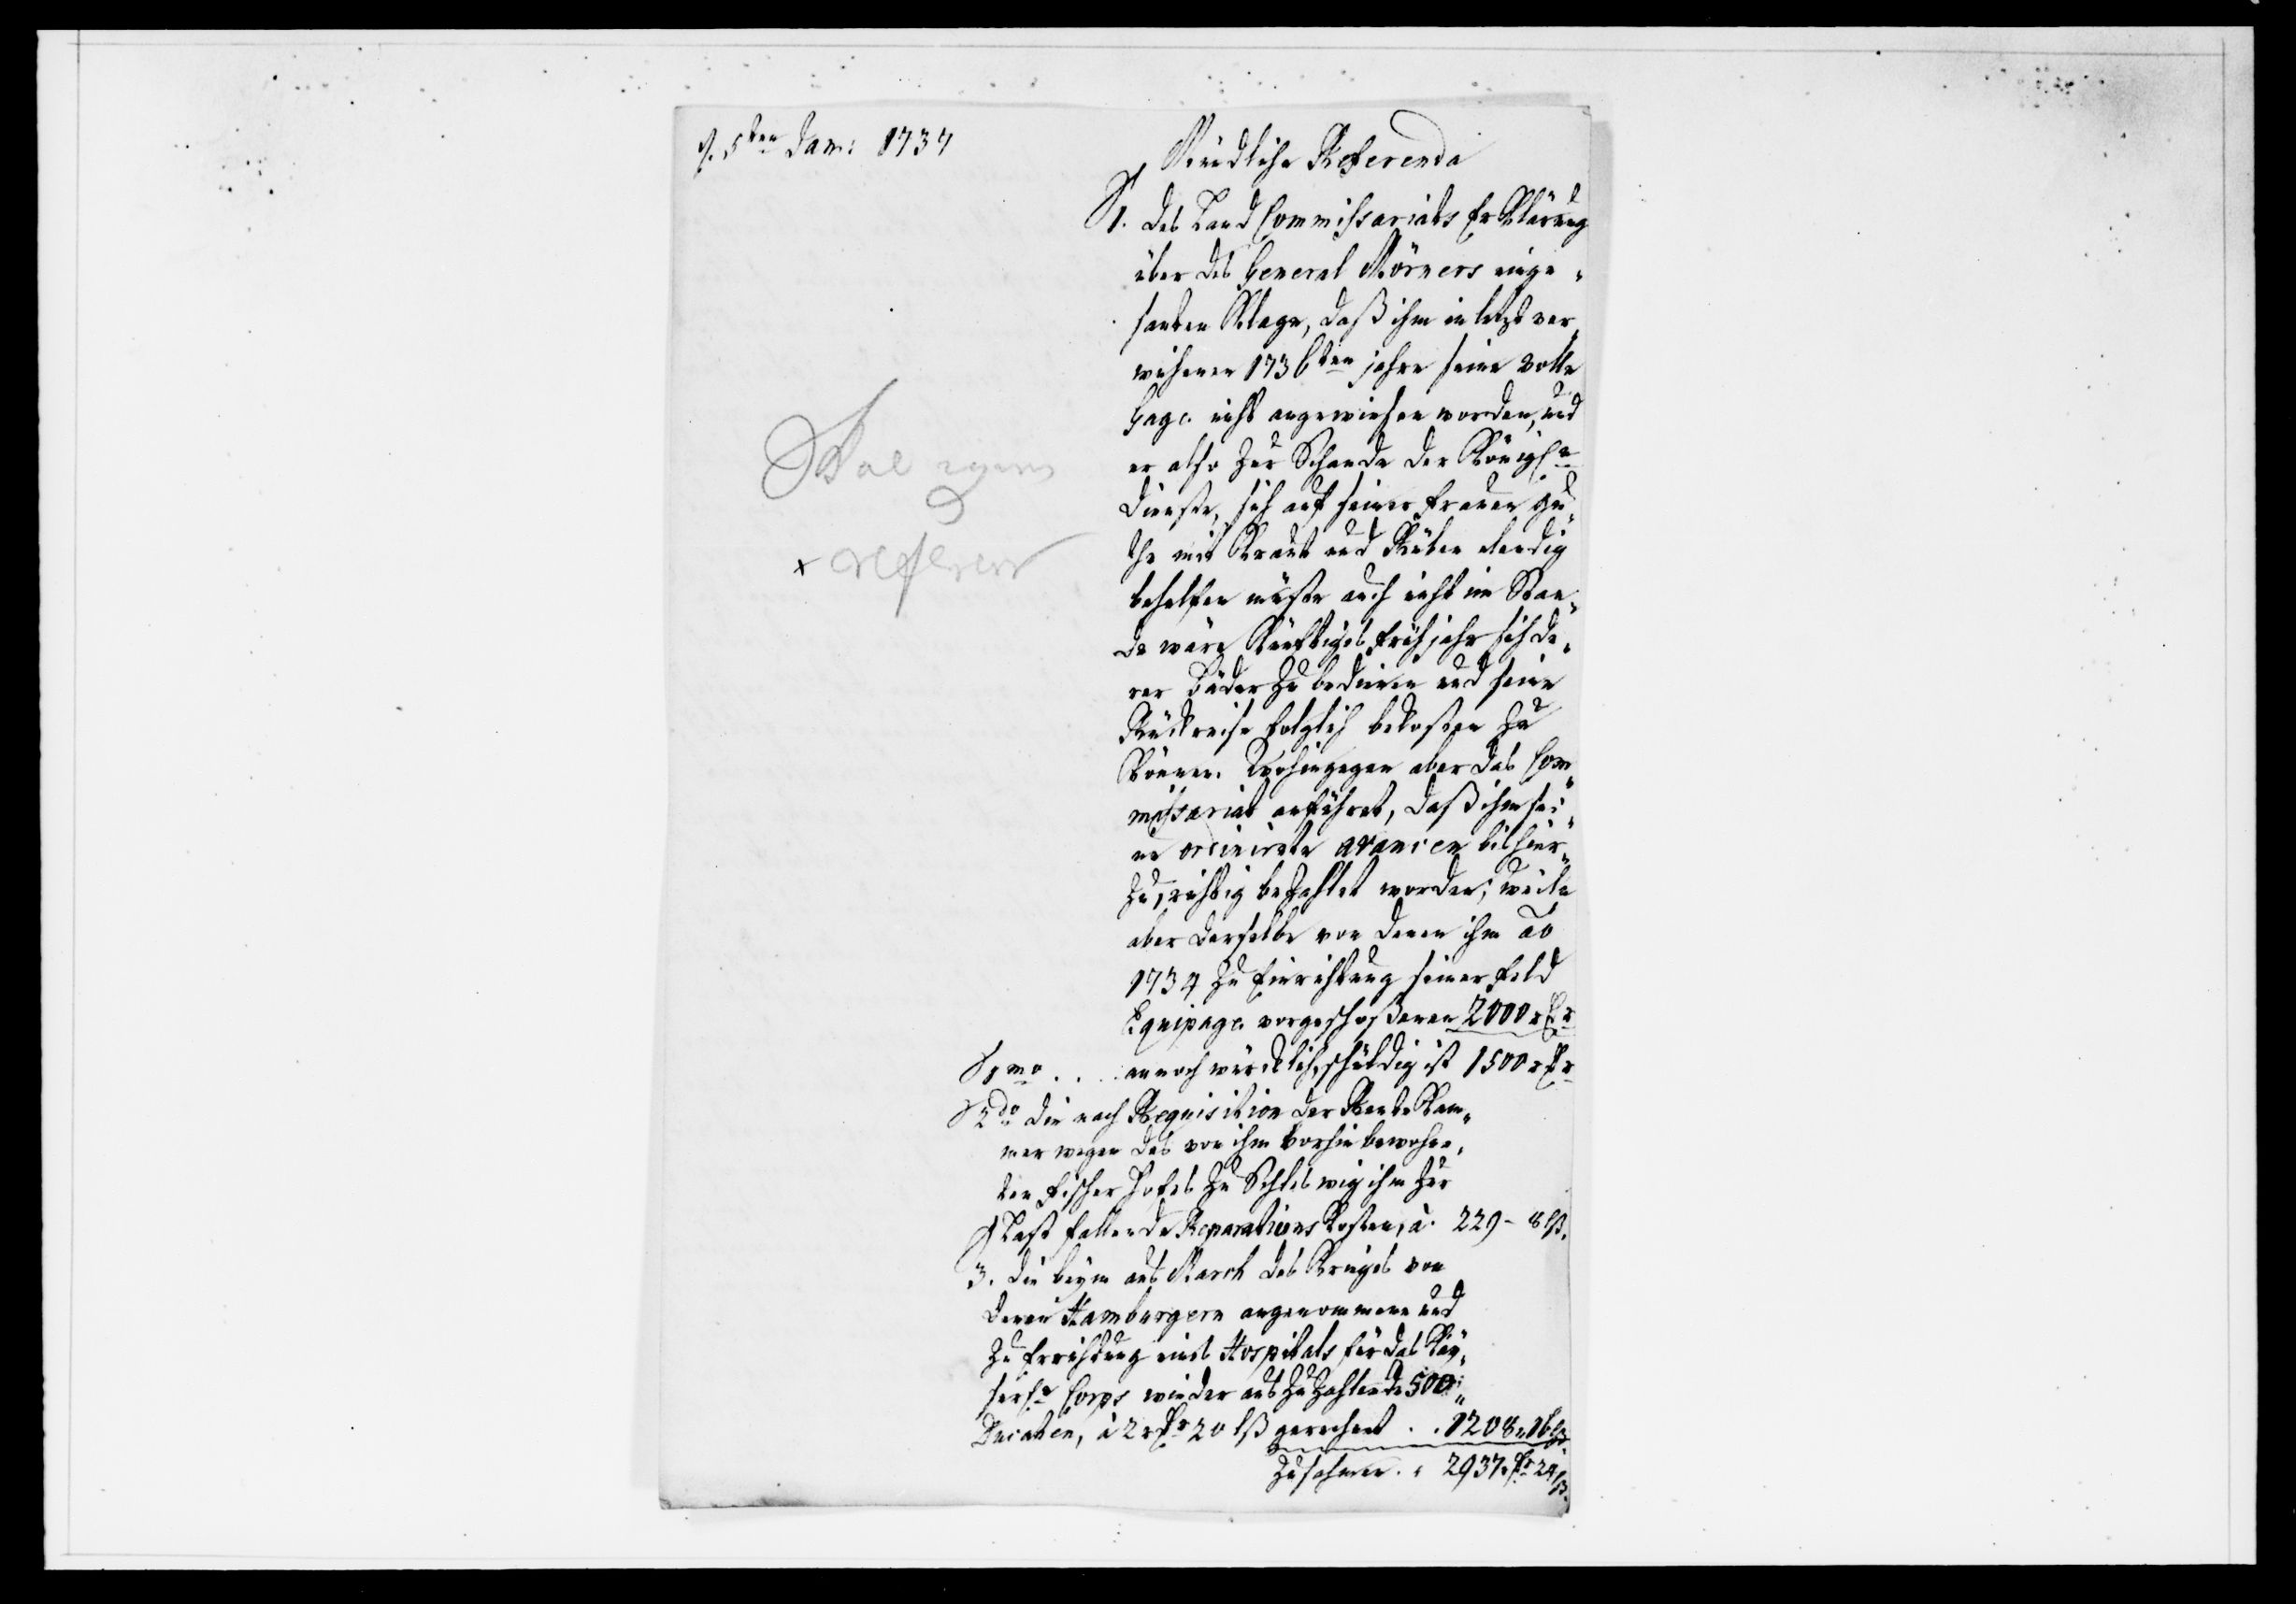 d. 5ten Jan: 1737
Mündliche Referenda
1. Des Land Commissariats Erklärung
über des General Mörners einge„
sandten Klage, daß ihm in letzt ver„
wichenen 1736ten jahre seine volle
Gage nicht angewiesen worden, und
er also zur Schande der Königl.n
Dienste, sich auf seiner Frauen Gü„
ther mit Kraut und Rüben elendig
behelfen müste auch nicht im Stan„
de wäre künfftiges Frühjahr sich de„
rer Bäder zu bedienen und seine
Rückreise folglich bekosten zu
können. Wohingegen aber das Com„
missariat anführet, daß ihm sei„
ne ordinirte avancen bishier„
zu, richtig bezahlet worden; Weile
aber derselbe von denen ihm Ao
1734 zu Einrichtung seiner Feld
Equipage vorgeschoßenen 2000 rthr
1mo . . annoch würcklich schuldig ist 1500 rthr
2do Die nach Requisition der Rente Kam„
mer wegen des von ihm vorhin bewohn„
ten Fischer Hofes zu Schleswig ihm zur
Last fallende Reparations Kosten, à 229 - 8 lß.
3. Die beym aus March des Krieges von
denen Hamburgern angenommene und
zu Errichtung eines Hospitals für das Käy„
serl. Corps wieder aus zu zahlende 500
Ducaten, à 2 rthr 20 lß gerechnet . . 1208 „ 16 lß
Zusahmen . . 2937 rthr 24 lß.
Skal igien
x referer